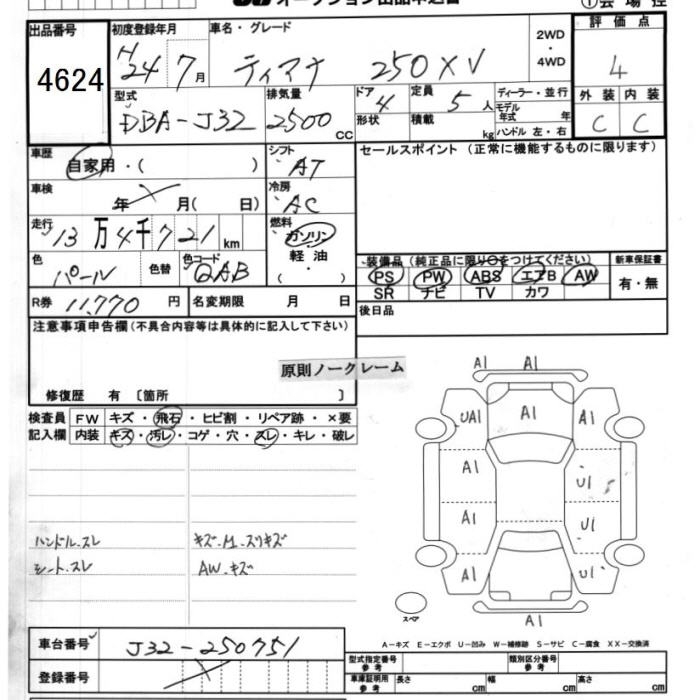 オークション出品申込書
①会場控
出品番号
4624
初度登録年月
H24年7月
車名・グレード
ティアナ 250XV
2WD・4WD
評価点
4
型式
DBA-J32
排気量
2500 CC
ドア 4
形状
定員 5 人
積載 kg
ディーラー・並行
モデル年式 年
ハンドル 左・右
外装 内装
C C
車歴
自家用・( )
シフト
AT
セールスポイント (正常に機能するものに限ります)
車検
年 × 月( 日)
冷房
AC
走行
13万4千721 km
燃料
ガソリン
軽油
( )
色
パール
色替
色コード
QAB
装備品 (純正品に限り○をつけてください)
PS PW ABS エアB AW
SR ナビ TV カワ
新車保証書
有・無
R券 11,770 円
名変期限 月 日
後日品
注意事項申告欄(不具合内容等は具体的に記入して下さい)
原則ノークレーム
修復歴 有 〔箇所 〕
検査員記入欄
FW キズ・飛石・ヒビ割・リペア跡・×要
内装 キズ・汚レ・コゲ・穴・スレ・キレ・破レ
ハンドル.スレ
キズ.M.スリキズ
シート.スレ
AW.キズ
A1 A1
UA1 A1 A1
A1 U1
A1 U1
A1 U1
A1
スペア
A-キズ E-エクボ U-凹み W-補修跡 S-サビ C-腐食 XX-交換済
車台番号
J32-250751
登録番号
型式指定番号 参考
類別区分番号 参考
車庫証明用 参考
長さ cm
幅 cm
高さ cm